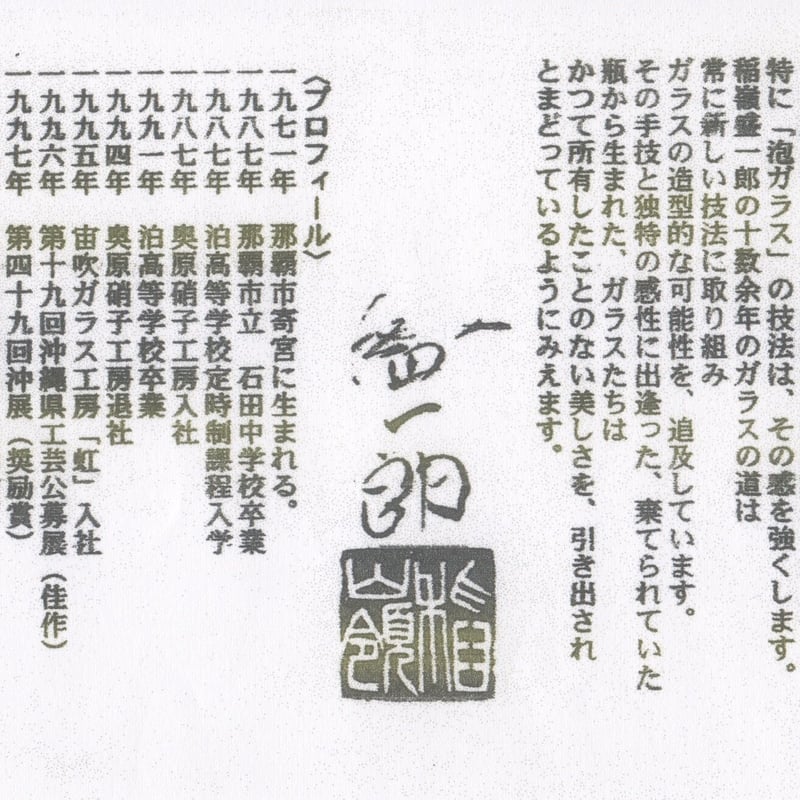 特に「泡ガラス」の技法は、その感を強くします。
稲嶺盛一郎の十数余年のガラスの道は
常に新しい技法に取り組み
ガラスの造型的な可能性を、追及しています。
その手技と独特の感性に出逢った、棄てられていた
瓶から生まれた、ガラスたちは
かつて所有したことのない美しさを、引き出され
とまどっているようにみえます。
一郎
稲嶺
〈プロフィール〉
一九七一年 那覇市寄宮に生まれる。
一九八七年 那覇市立 石田中学校卒業
一九八七年 泊高等学校定時制課程入学
一九八七年 奥原硝子工房入社
一九九一年 泊高等学校卒業
一九九四年 奥原硝子工房退社
一九九五年 宙吹ガラス工房「虹」入社
一九九六年 第十九回沖縄県工芸公募展（佳作）
一九九七年 第四十九回沖展（奨励賞）